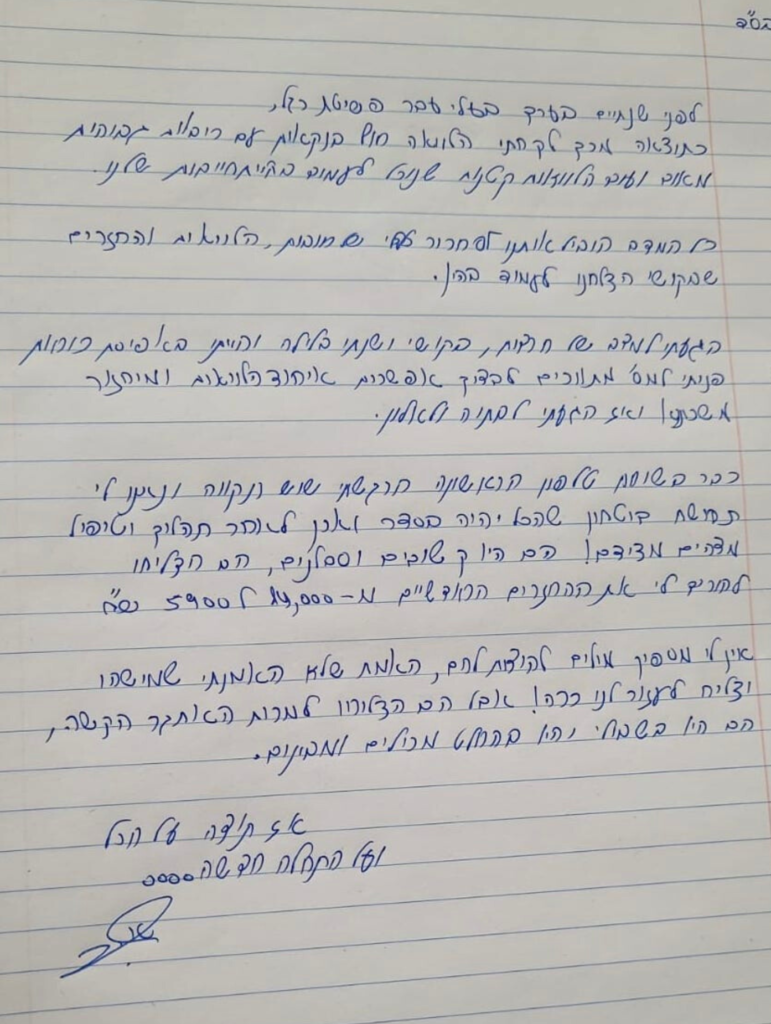 בס"ד
לפני שנתיים בערך בעלי עבר פשיטת רגל,
כתוצאה מכך לקחתי הלוואה חוץ בנקאית עם ריביות גבוהות
מאוד ועוד הלוואות קטנות שנוכל לעמוד בהתחייבות שלנו.
כל המצב הוביל אותנו לסחרור של חובות, הלוואות והחזרים
שבקושי הצלחנו לעמוד בהן.
הגעתי למצב של חרדות, בקושי ישנתי בלילה והייתי באפיסת כוחות
פניתי למס' מתווכים לבדוק אפשרות איחוד הלוואות ומיחזור
משכנתא ואז הגעתי לבתיה ולאלון.
כבר בשיחת טלפון הראשונה הרגשתי שיש תקווה ונתנו לי
תחושת ביטחון שהכל יהיה בסדר ואכן לאחר תהליך וטיפול
מדהים מצידם! הם היו קשובים וסבלנים, הם הצליחו
להוריד לי את ההחזרים החודשיים מ-14,000 ל 5900 ש"ח
אין לי מספיק מילים להודות להם, האמת שלא האמנתי שמישהו
יצליח לעזור לנו ככה! אבל הם הצליחו למרות האתגר הקשה,
הם היו בשבילי והיו בהחלט מכילים ומבינים.
אז תודה על הכל
ועל התחלה חדשה